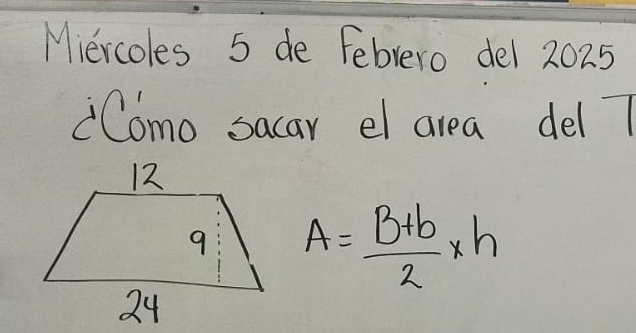 Miércoles 5 de Febrero del 2025
¿Cómo sacar el area del T
12
9
24
A = B+b/2 x h